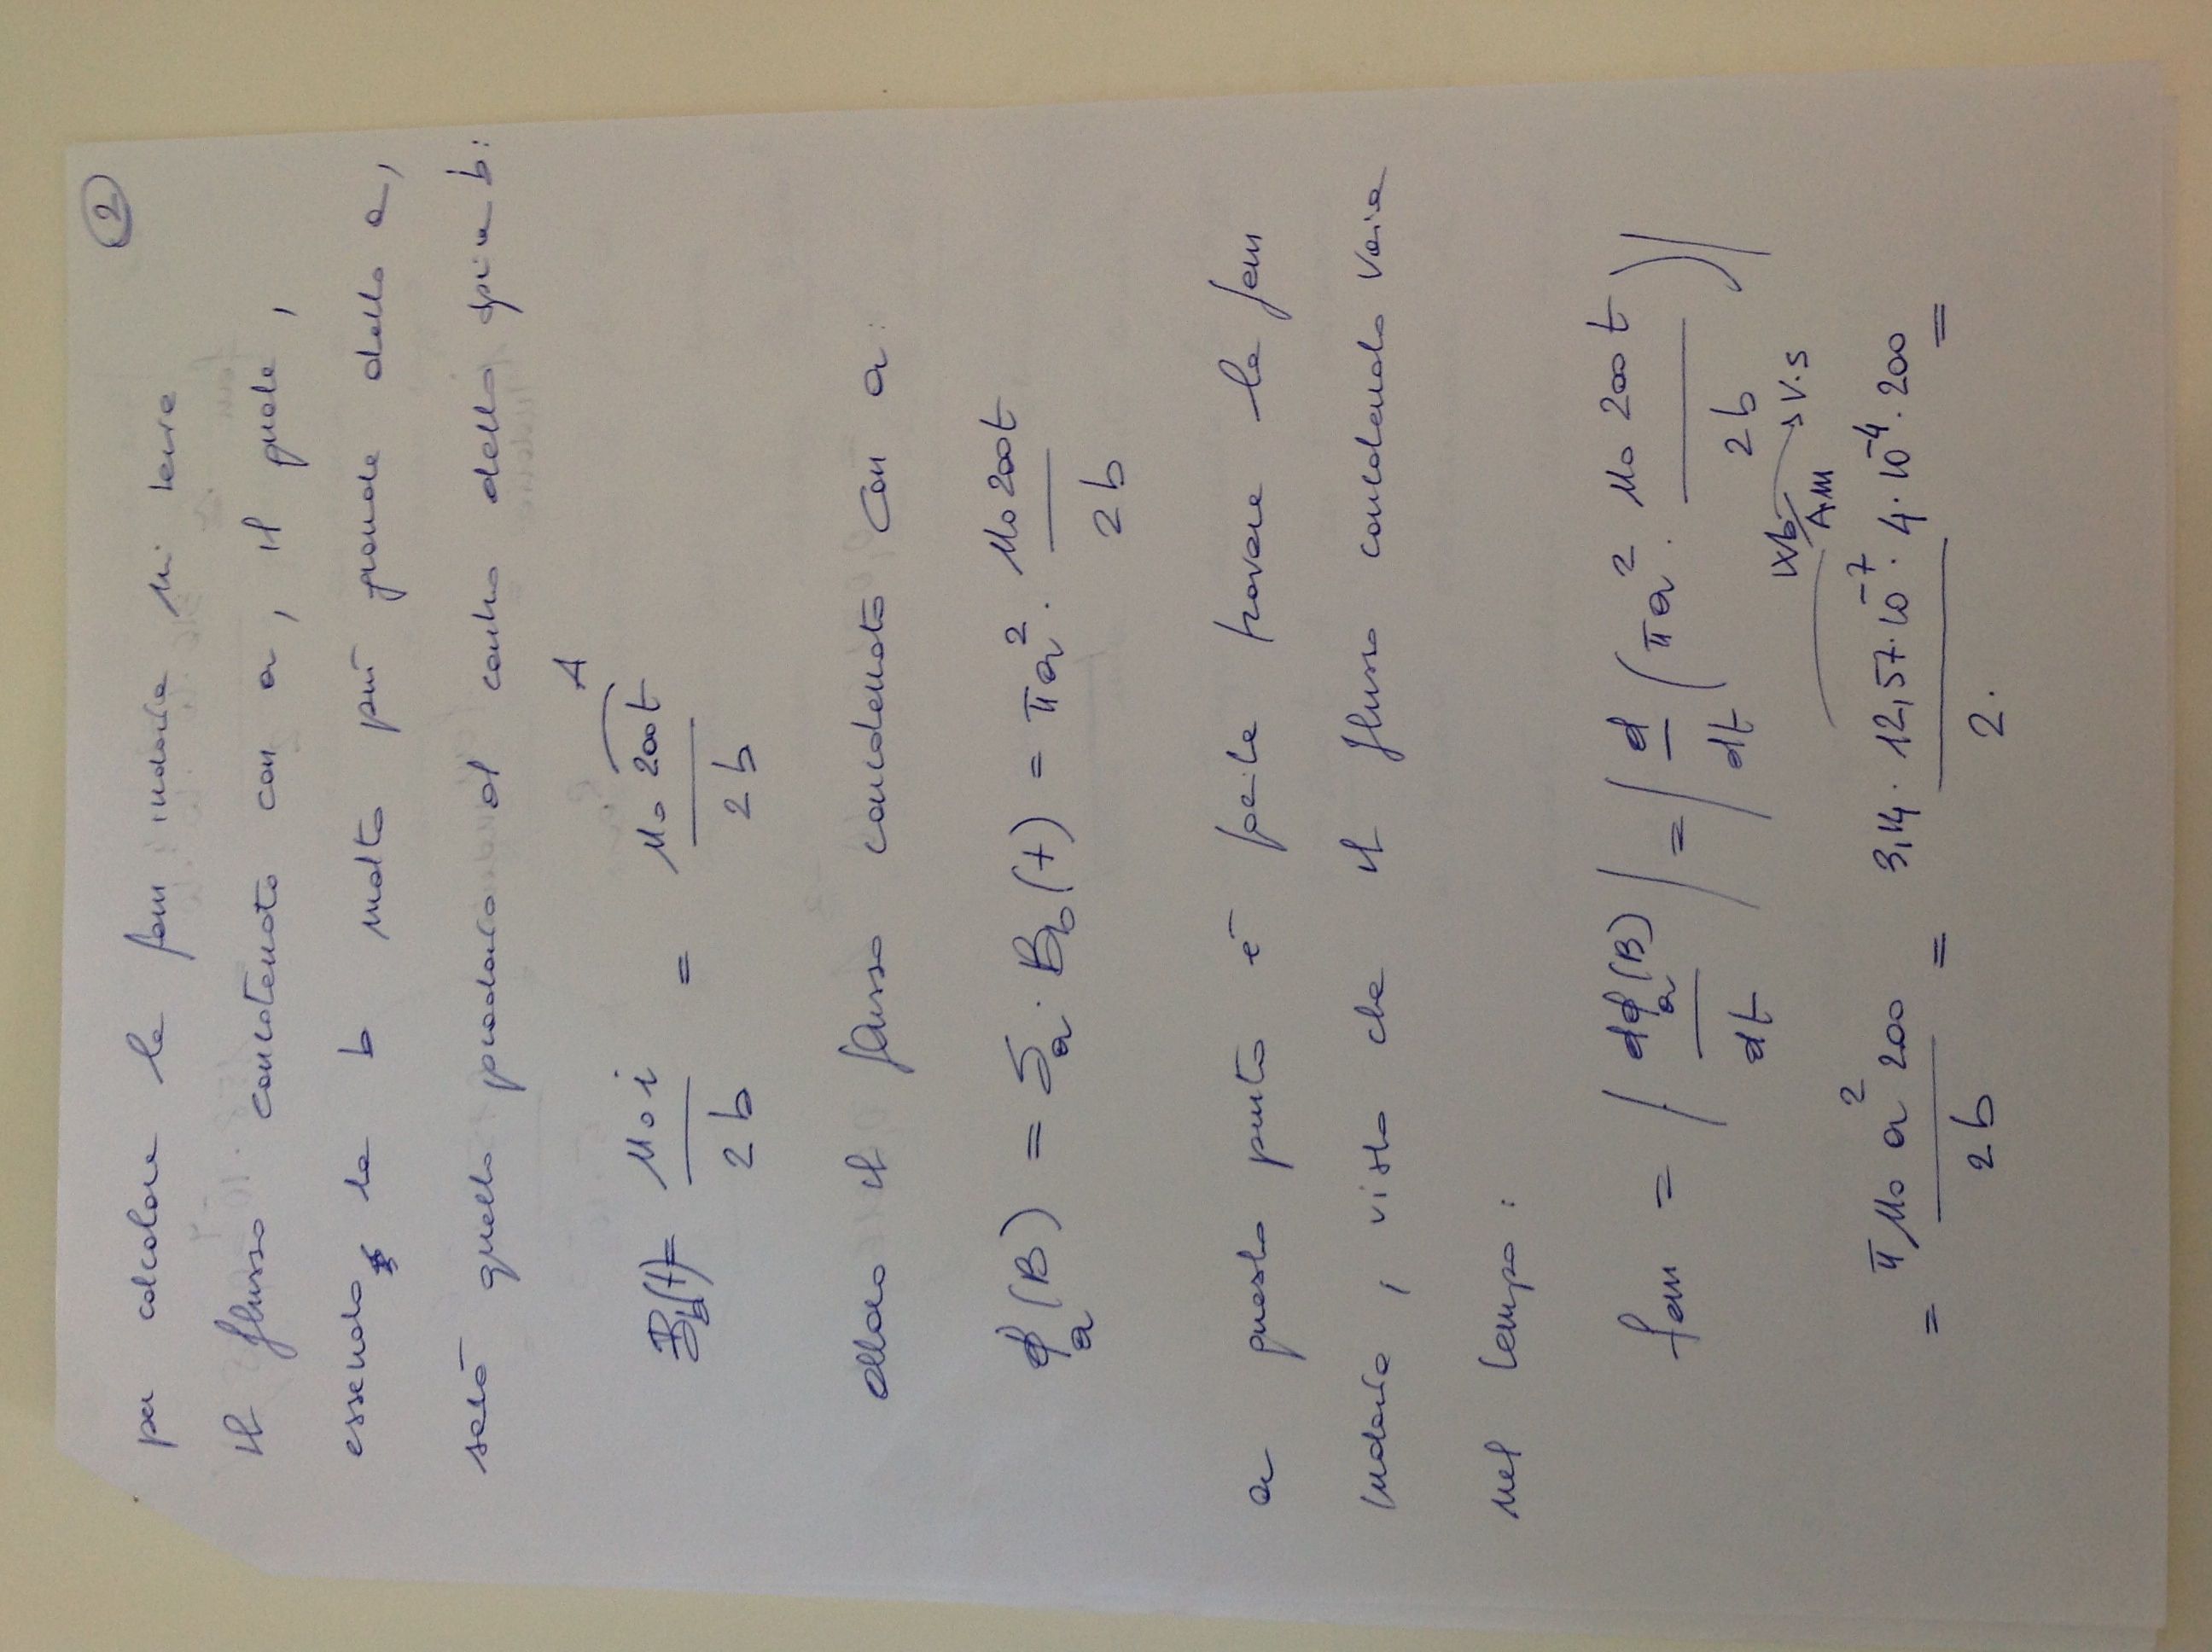 2
per calcolare la fem indotta mi serve
il flusso concatenato con a, il quale,
essendo la b molto più grande della a,
sarà quello prodotto al centro della spira b:
A
B_b(t) = μ₀ i / 2b = μ₀ 200t / 2b
allora il flusso concatenato con a:
ϕ_a(B) = S_a · B_b(t) = πa² · μ₀ 200t / 2b
a questo punto è facile trovare la fem
indotta, visto che il flusso concatenato varia
nel tempo:
fem = | dϕ_a(B) / dt | = | d/dt ( πa² · μ₀ 200 t / 2b ) |
Wb/A·m → V·s
= π μ₀ a² 200 / 2b = 3,14 · 12,57·10⁻⁷ · 4·10⁻⁴ · 200 / 2· =